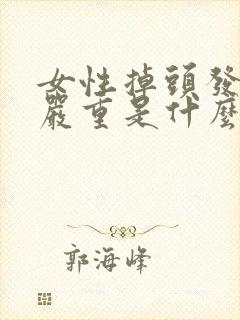 女性掉頭發
嚴重是什麼
郭海峰